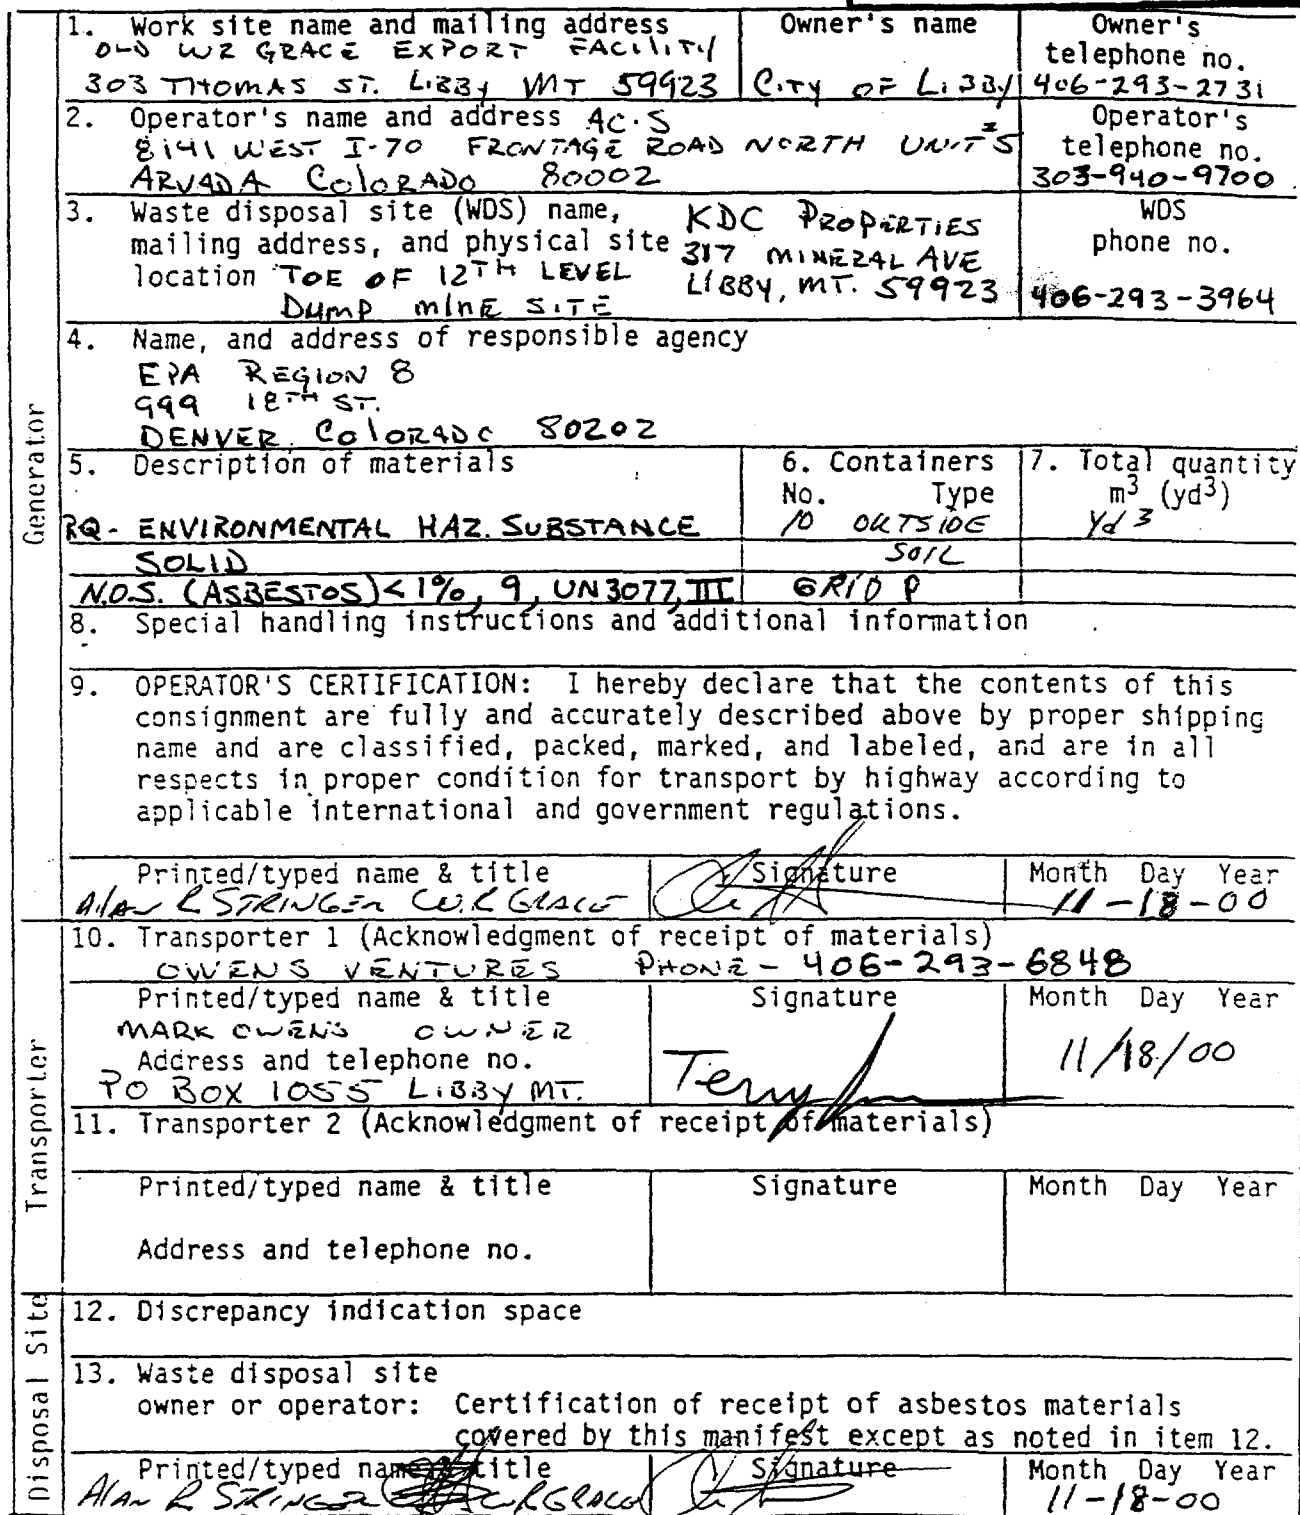 1. Work site name and mailing address
OLD WR GRACE EXPORT FACILITY
303 THOMAS ST. LIBBY MT 59923
Owner's name
CITY OF LIBBY
Owner's telephone no.
406-293-2731
2. Operator's name and address AC.S
8141 WEST I-70 FRONTAGE ROAD NORTH UNIT #5
ARVADA COLORADO 80002
Operator's telephone no.
303-940-9700
3. Waste disposal site (WDS) name,
mailing address, and physical site
location TOE OF 12TH LEVEL
DUMP MINE SITE
KDC PROPERTIES
317 MINERAL AVE
LIBBY, MT. 59923
WDS
phone no.
406-293-3964
Generator
4. Name, and address of responsible agency
EPA REGION 8
999 18TH ST.
DENVER COLORADO 80202
5. Description of materials
6. Containers
No. Type
7. Total quantity
m3 (yd3)
RQ - ENVIRONMENTAL HAZ. SUBSTANCE
10 OUTSIDE
Yd 3
SOLID
SOIL
N.O.S. (ASBESTOS) < 1%, 9, UN3077, III
GRID P
8. Special handling instructions and additional information
9. OPERATOR'S CERTIFICATION: I hereby declare that the contents of this
consignment are fully and accurately described above by proper shipping
name and are classified, packed, marked, and labeled, and are in all
respects in proper condition for transport by highway according to
applicable international and government regulations.
Printed/typed name & title
Signature
Month Day Year
Alan R STRINGER W.R GRACE
11-18-00
Transporter
10. Transporter 1 (Acknowledgment of receipt of materials)
OWENS VENTURES PHONE - 406-293-6848
Printed/typed name & title
Signature
Month Day Year
MARK OWENS OWNER
Address and telephone no.
PO BOX 1055 LIBBY MT.
Terry
11/18/00
11. Transporter 2 (Acknowledgment of receipt of materials)
Printed/typed name & title
Signature
Month Day Year
Address and telephone no.
Disposal Site
12. Discrepancy indication space
13. Waste disposal site
owner or operator: Certification of receipt of asbestos materials
covered by this manifest except as noted in item 12.
Printed/typed name & title
Signature
Month Day Year
Alan R STRINGER W.R GRACE
11-18-00